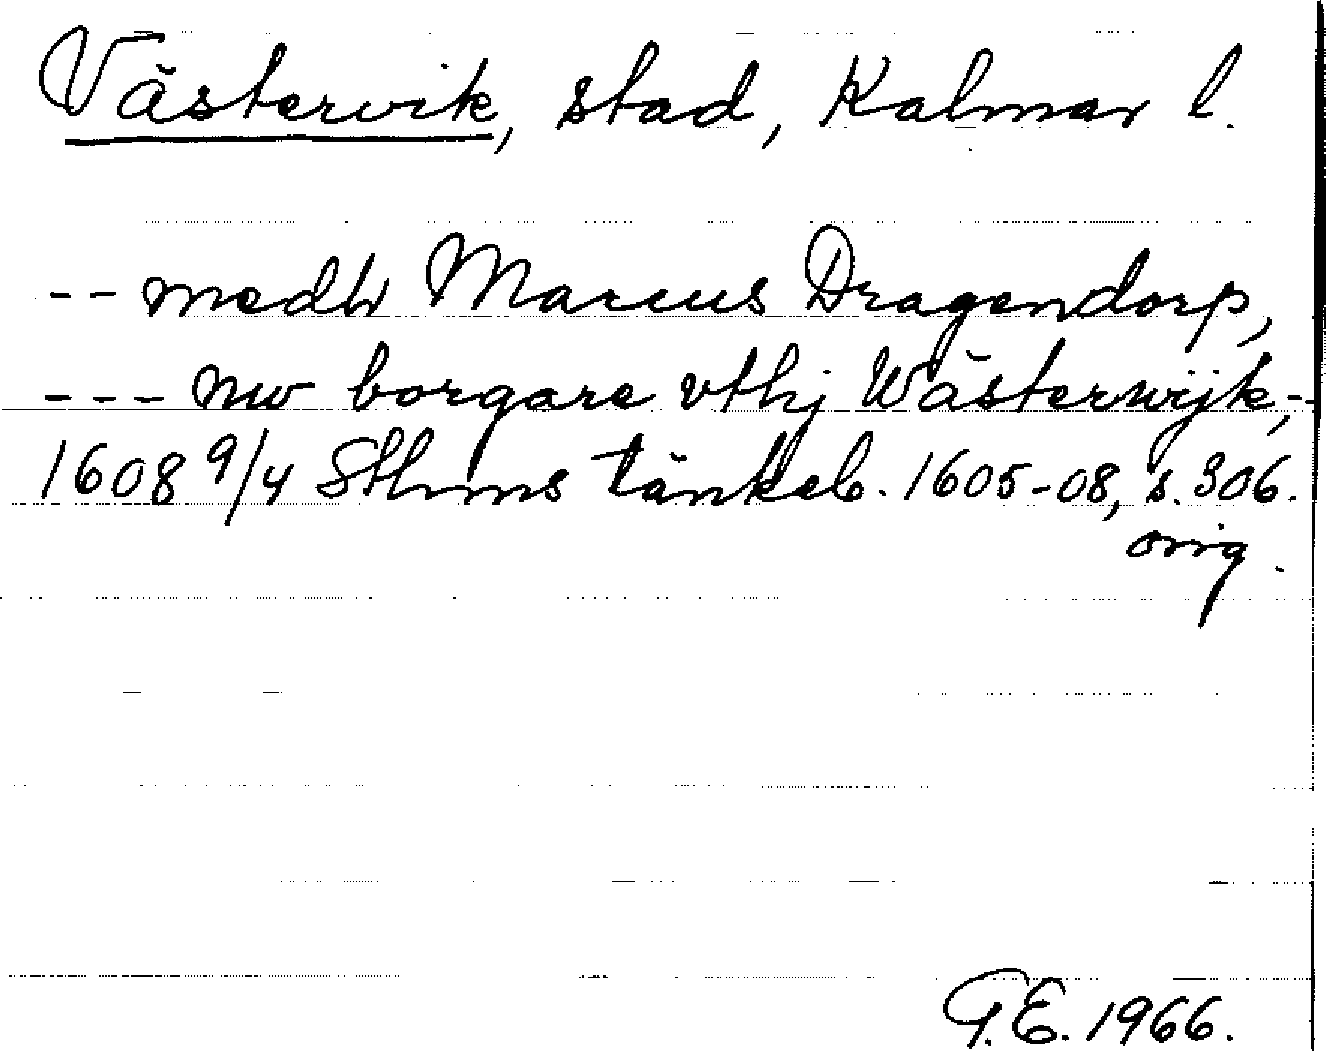 Västervik, stad, Kalmar l.
-- medh Marcus Dragendorp,
--- nw borgare vthj Wästerwijk,-
1608 9/4 Sthms tänkeb. 1605-08, s. 306.
orig.
G.E. 1966.